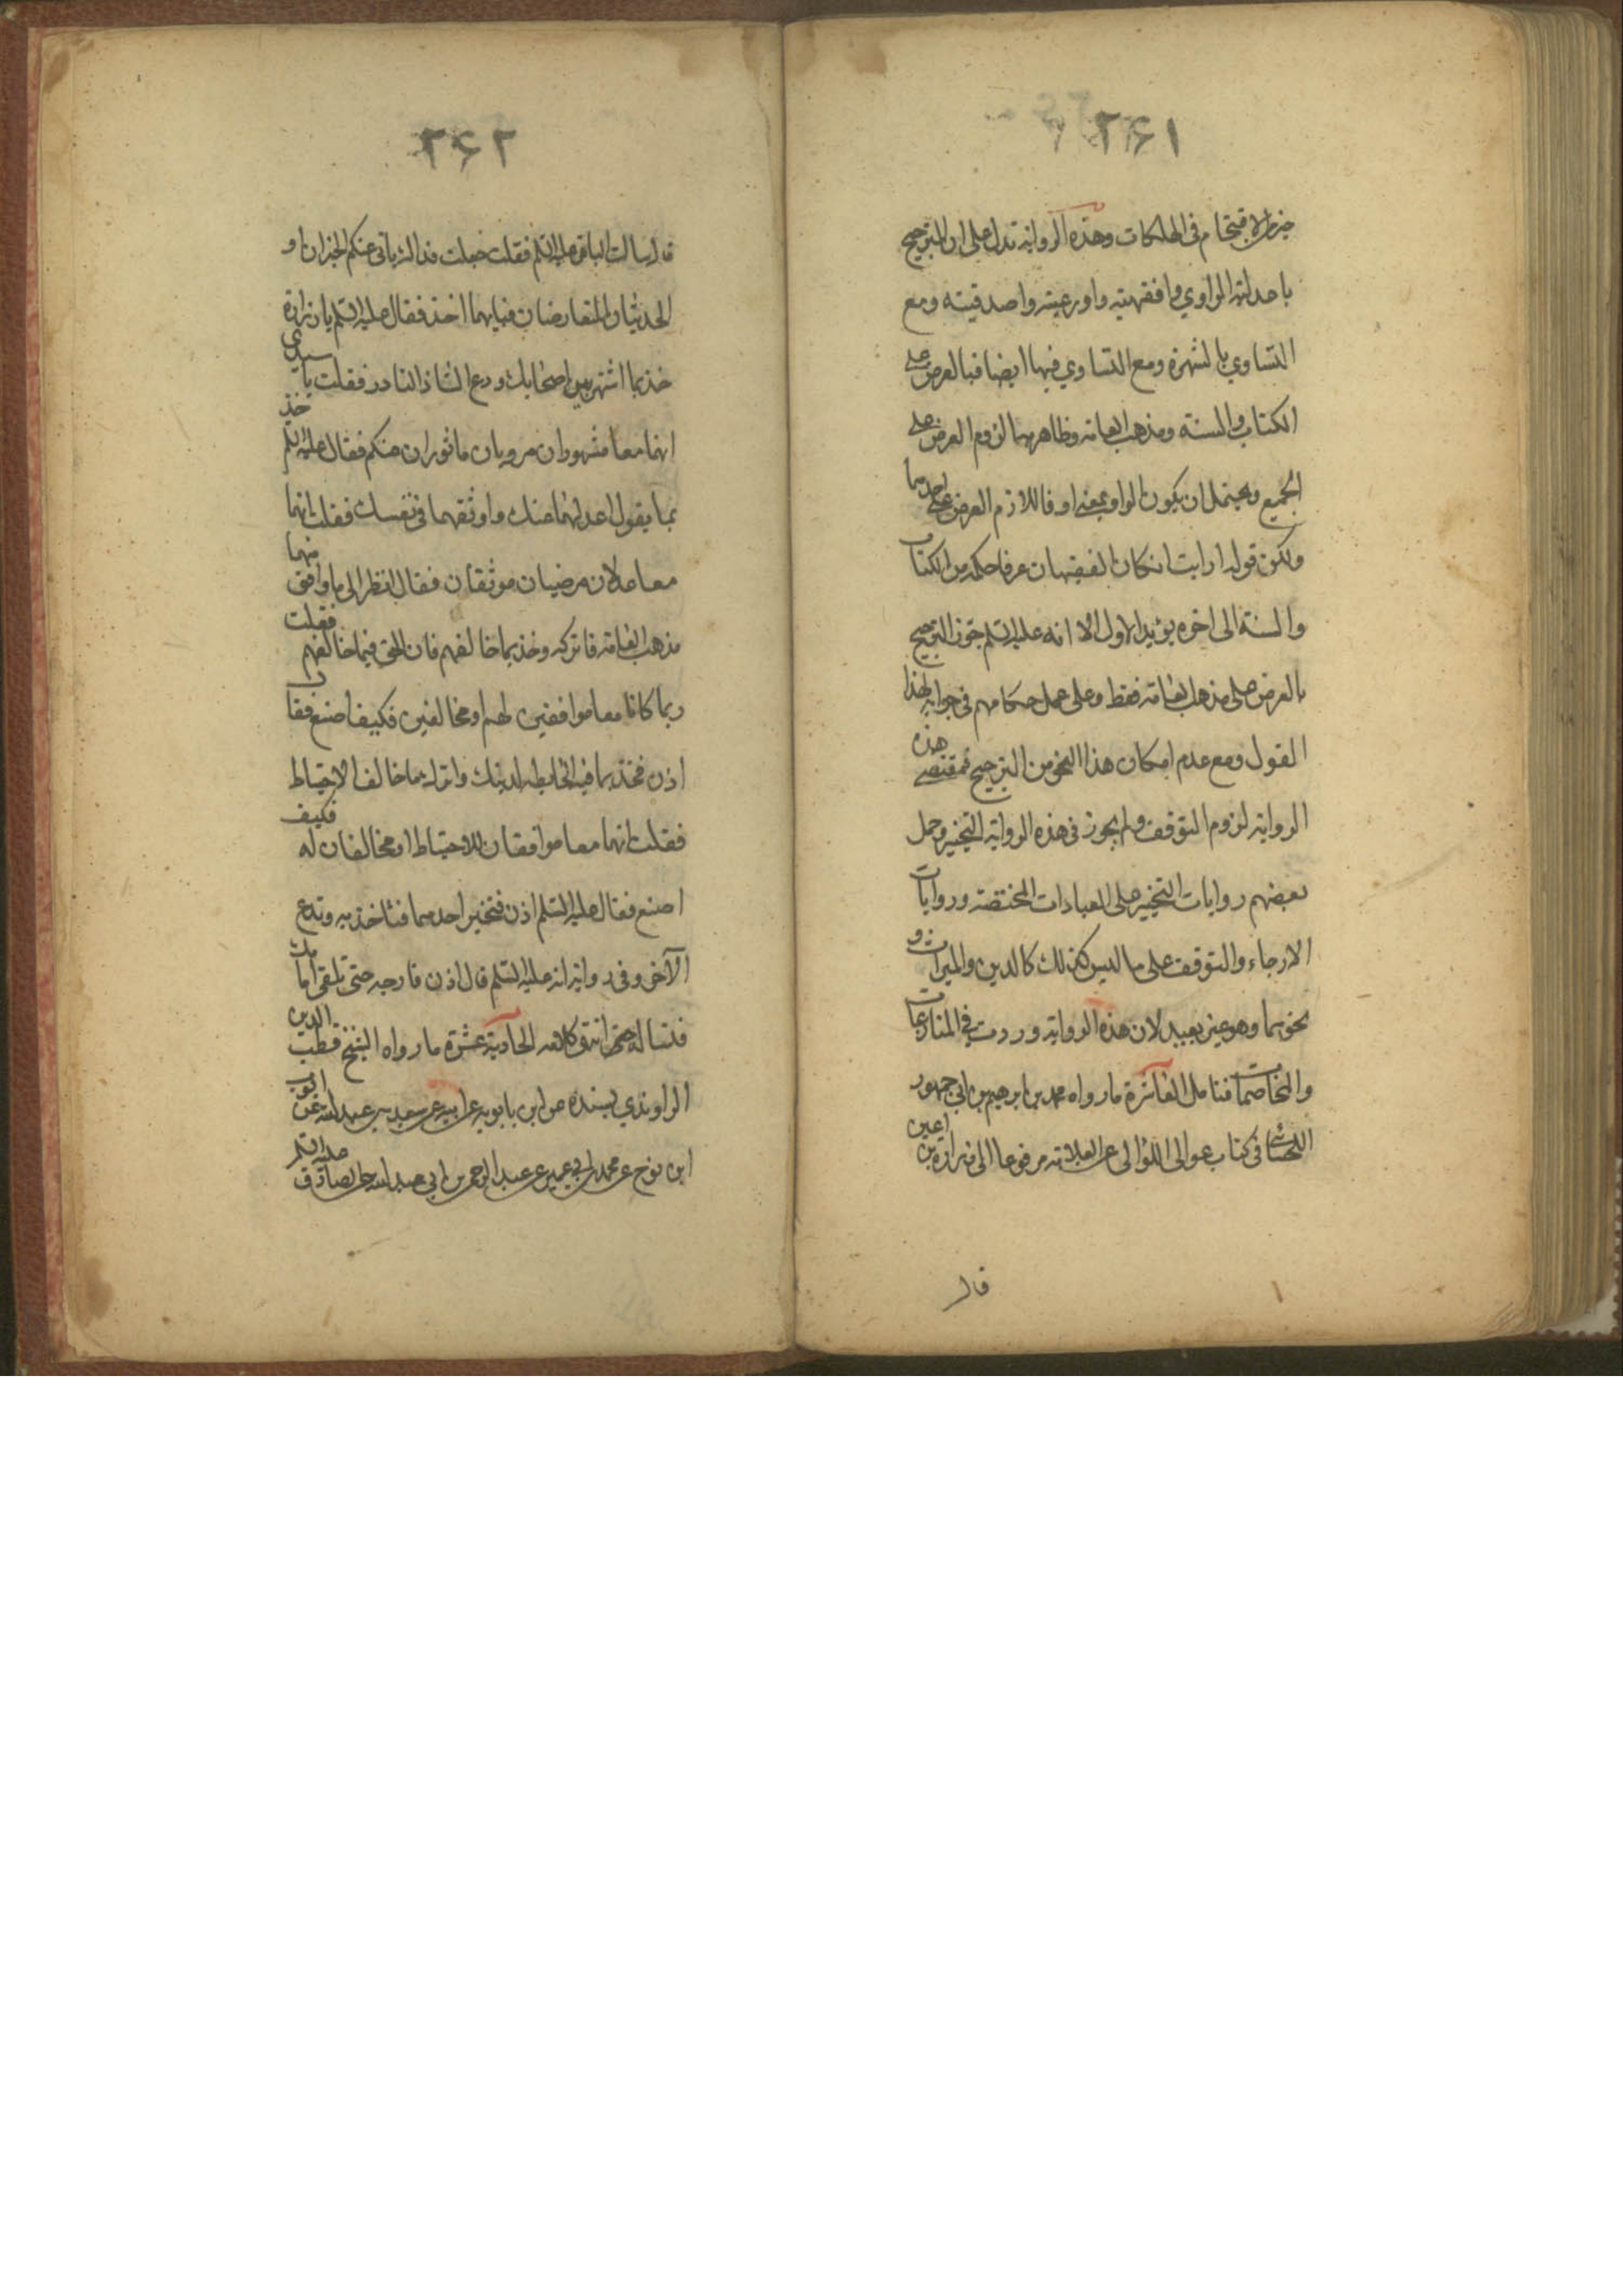 ٢۶١
خير من الاقتحام فى الهلكات وهذه الرواية تدل على ان الترجيح
باعدلية الراوي وافقهيته واورعيته واصدقيته ومع
التساوي بالشهرة ومع التساوي فيها ايضا فبالعرض على
الكتاب والسنة ومذهب العامة وظاهرهما لزوم العرض على
الجميع ويحتمل ان يكون الواو بمعنى او فاللازم العرض على احدهما
ولكن قوله ارايت ان كان الفقيهان عرفا حكمه من الكتاب
والسنة الى اخره يؤيد الاول الا انه عليه السلم جوز الترجيح
بالعرض على مذهب العامة فقط وعلى عمل حكامهم فى جوابه لهذا
القول ومع عدم امكان هذا النحو من الترجيح فمقتضى هذه
الرواية لزوم التوقف ولم يجوز فى هذه الرواية التخيير وحمل
بعضهم روايات التخيير على العبادات المختصة وروايات
الارجاء والتوقف على ما ليس كذلك كالدين والميراث و
نحوهما وهو غير بعيد لان هذه الرواية وردت في المنازعات
والمخاصمات فتامل العاشرة ما رواه محمد بن ابرهيم بن ابي جمهور
اللحسائى فى كتاب عوالى اللؤالى عن العلامة مرفوعا الى زرارة بن اعين
قال
٢۶٢
قال سالت الباقر عليه السلم فقلت جعلت فداك ياتى عنكم الخبران او
الحديثان المتعارضان فبايهما اخذ فقال عليه السلم يا زرارة
خذ بما اشتهر بين اصحابك ودع الشاذ النادر فقلت يا سيدي
انهما معا مشهوران مرويان ماثوران عنكم فقال عليه السلم خذ
بما يقول اعدلهما عندك واوثقهما فى نفسك فقلت انهما
معا عدلان مرضيان موثقان فقال انظر الى ما وافق منهما
مذهب العامة فاتركه وخذ بما خالفهم فان الحق فيما خالفهم فقلت
ربما كانا معا موافقين لهم او مخالفين فكيف اصنع فقال
اذن فخذ بما فيه الحايطة لدينك واترك ما خالف الاحتياط
فقلت انهما معا موافقان للاحتياط او مخالفان له فكيف
اصنع فقال عليه السلم اذن فتخير احدهما فتاخذ به وتدع
الآخر وفى رواية انه عليه السلم قال اذن فارجه حتى تلقى امامك
فتساله انتهى كلامه الحادية عشرة ما رواه الشيخ قطب الدين
الراوندي بسنده عن ابن بابويه عن ابيه عن سعد بن عبد الله عن ايوب
ابن نوح عن محمد بن ابي عمير عن عبد الرحمن بن ابي عبد الله عن الصادق عليه السلم